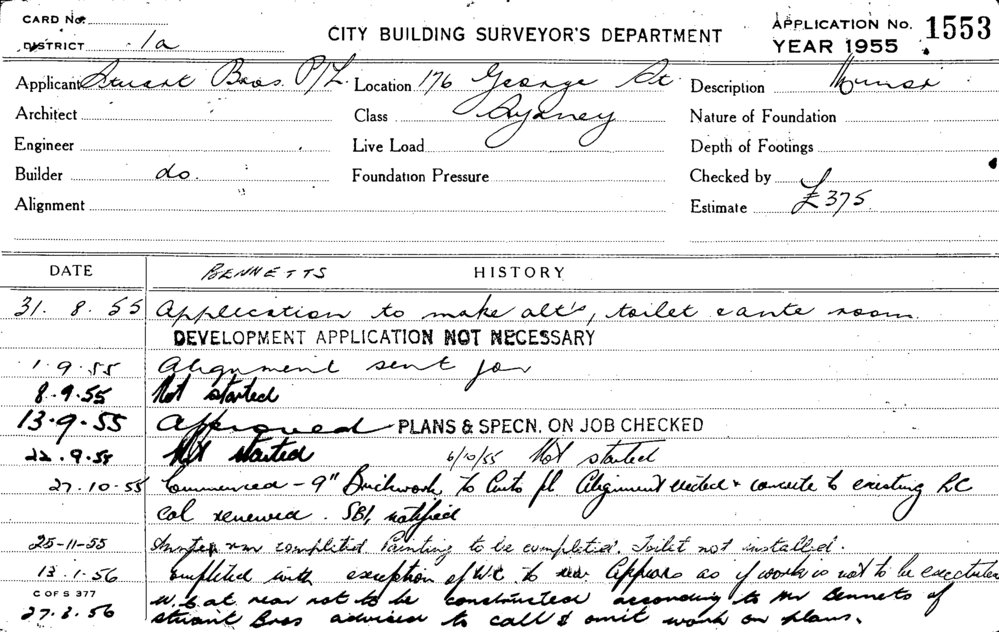 CARD No.
DISTRICT 1a
CITY BUILDING SURVEYOR'S DEPARTMENT
APPLICATION No. 1553
YEAR 1955
Applicant Stuart Bros. P/L. Location 176 George St. Description
Architect Class Sydney Nature of Foundation
Engineer Live Load Depth of Footings
Builder do. Foundation Pressure Checked by
Alignment Estimate £375
DATE BENNETTS HISTORY
31. 8. 55 Application to make alt's, toilet & ante room
DEVELOPMENT APPLICATION NOT NECESSARY
1.9.55 Alignment sent for
8.9.55 Not started
13.9.55 Approved PLANS & SPECN. ON JOB CHECKED
22.9.55 Not started 6/10/55 Not started
27.10.55 Commenced - 9" Brickwork to fl Alignment & concrete to existing
col renewed. SBI, notified
25-11-55 room completed Painting to be completed. Toilet not installed.
13.1.56 Completed with exception of W.C. to rear Appears as if work is not to be executed
C OF S 377
27.3.56 W.C. at rear not to be constructed according to Mr Bennets of
Stuart Bros advised to call & omit work on plans.